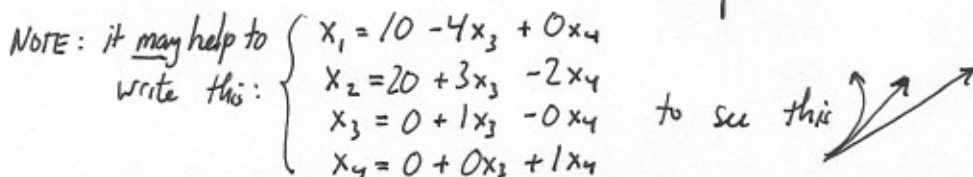 NOTE: it may help to write this:
x₁ = 10 - 4x₃ + 0x₄
x₂ = 20 + 3x₃ - 2x₄
x₃ = 0 + 1x₃ - 0x₄
x₄ = 0 + 0x₃ + 1x₄
to see this